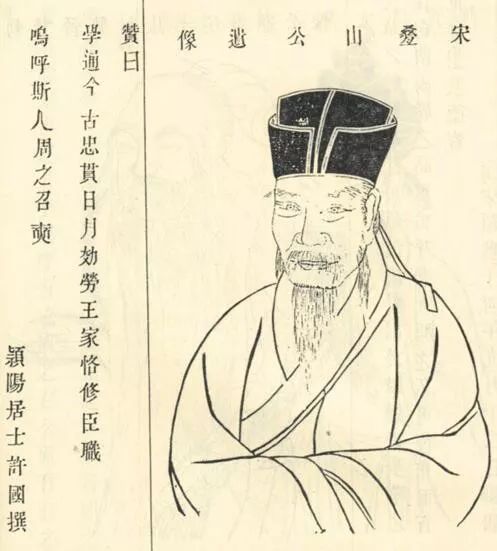 宋疊山公遺像
贊曰
學通今古忠貫日月効勞王家恪修臣職
嗚呼斯人周之召奭
潁陽居士許國撰